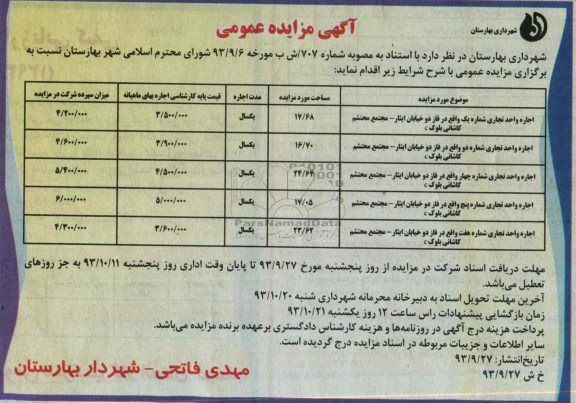 آگهی مزایده عمومی
شهرداری بهارستان
شهرداری بهارستان در نظر دارد با استناد به مصوبه شماره ۷۰۷/ش ب مورخه ۹۳/۹/۶ شورای محترم اسلامی شهر بهارستان نسبت به
برگزاری مزایده عمومی با شرح شرایط زیر اقدام نماید:
موضوع مورد مزایده مساحت مورد مزایده مدت اجاره قیمت پایه کارشناسی اجاره بهای ماهیانه میزان سپرده شرکت در مزایده
اجاره واحد تجاری شماره یک واقع در فاز دو خیابان ایثار – مجتمع محتشم ۱۷/۶۸ یکسال ۳/۵۰۰/۰۰۰ ۴/۲۰۰/۰۰۰
کاشانی بلوک c
اجاره واحد تجاری شماره دو واقع در فاز دو خیابان ایثار – مجتمع محتشم ۱۶/۷۰ یکسال ۳/۹۰۰/۰۰۰ ۴/۶۰۰/۰۰۰
کاشانی بلوک c
اجاره واحد تجاری شماره چهار واقع در فاز دو خیابان ایثار – مجتمع محتشم ۲۴/۶۴ یکسال ۴/۵۰۰/۰۰۰ ۵/۴۰۰/۰۰۰
کاشانی بلوک c
اجاره واحد تجاری شماره پنج واقع در فاز دو خیابان ایثار – مجتمع محتشم ۱۷/۰۵ یکسال ۵/۰۰۰/۰۰۰ ۶/۰۰۰/۰۰۰
کاشانی بلوک c
اجاره واحد تجاری شماره هفت واقع در فاز دو خیابان ایثار – مجتمع محتشم ۲۳/۶۲ یکسال ۳/۶۰۰/۰۰۰ ۴/۳۰۰/۰۰۰
کاشانی بلوک c
ParsNamadData
مهلت دریافت اسناد شرکت در مزایده از روز پنجشنبه مورخ ۹۳/۹/۲۷ تا پایان وقت اداری روز پنجشنبه ۹۳/۱۰/۱۱ به جز روزهای
تعطیل می‌باشد.
آخرین مهلت تحویل اسناد به دبیرخانه محرمانه شهرداری شنبه ۹۳/۱۰/۲۰
زمان بازگشایی پیشنهادات راس ساعت ۱۲ روز یکشنبه ۹۳/۱۰/۲۱
پرداخت هزینه درج آگهی در روزنامه‌ها و هزینه کارشناس دادگستری برعهده برنده مزایده می‌باشد.
سایر اطلاعات و جزییات مربوطه در اسناد مزایده درج گردیده است.
تاریخ انتشار: ۹۳/۹/۲۷
خ ش ۹۳/۹/۲۷
مهدی فاتحی – شهردار بهارستان